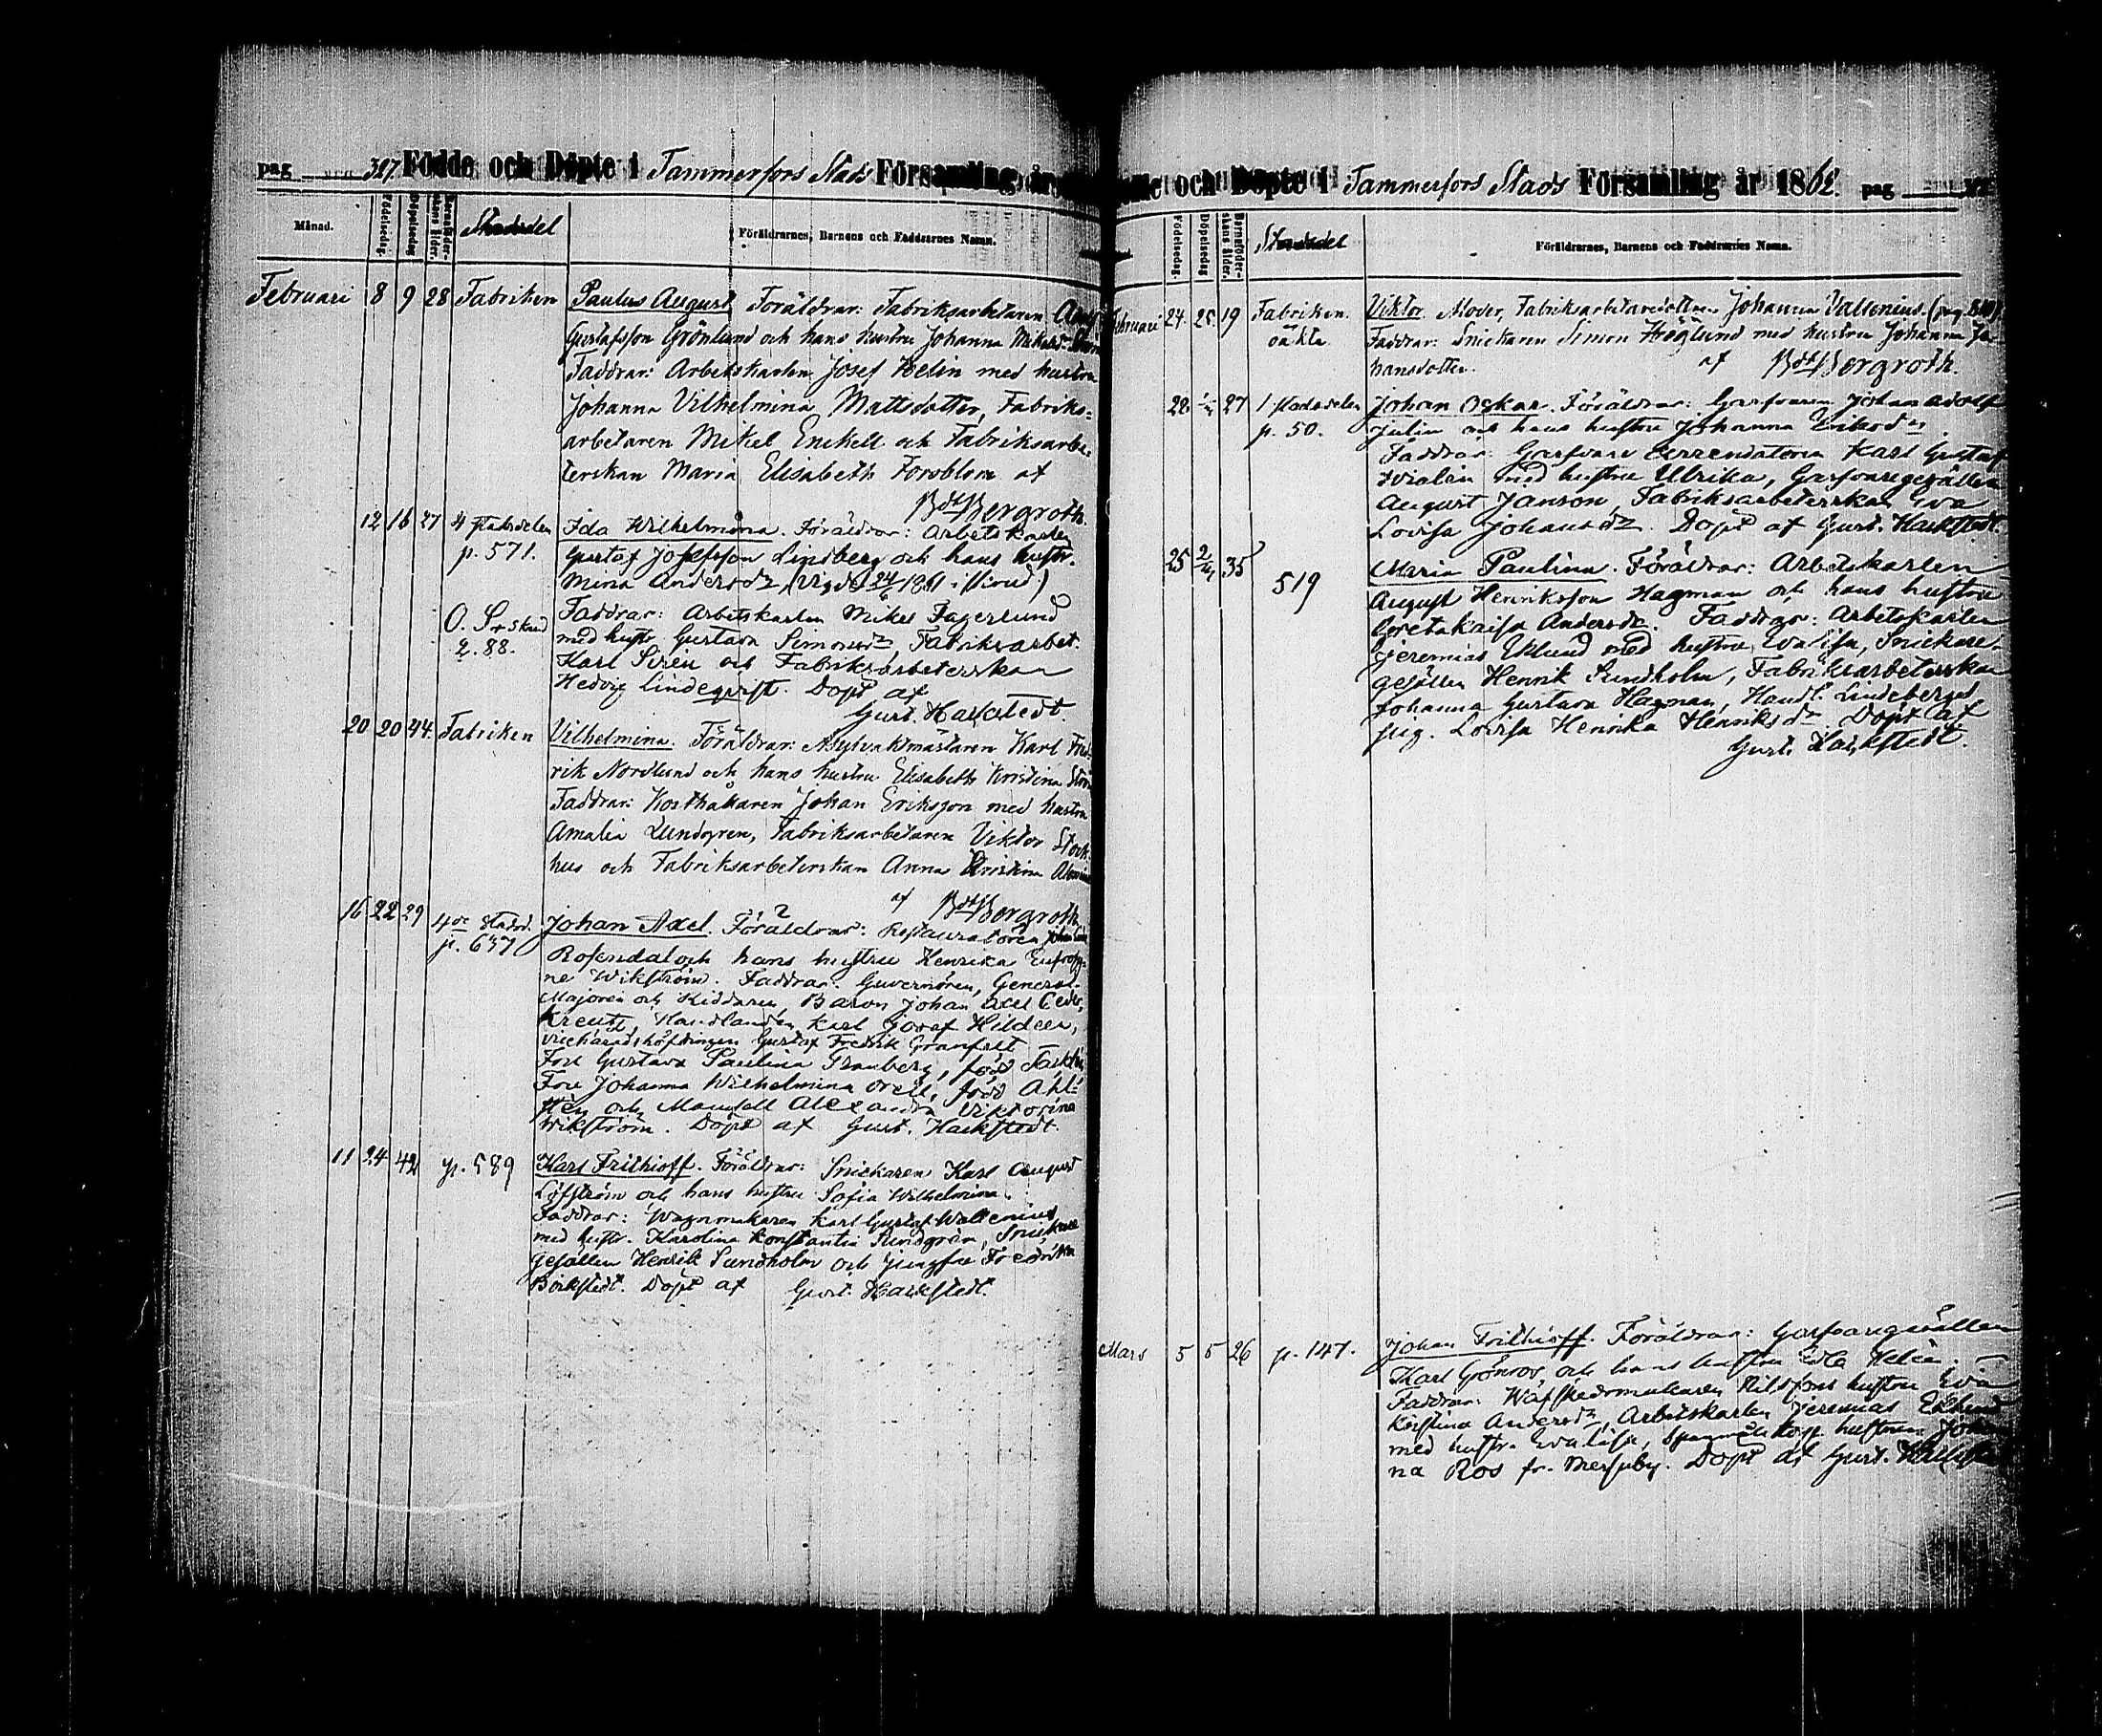 pag 327. Födde och Döpte i Tammerfors Stads Församling år
Månad. Födelsedag. Döpelsedag Barnaföderskans ålder. Stadsdel Föräldrarnes, Barnens och Faddrarnes Namn.
Februari 8 9 28 Fabriken Paulus August Föräldrar: Fabriksarbetaren
Gustafsson Grönlund och hans hustru Johanna Mikelsdr
Faddrar: Arbetskarlen Josef Helin med hustru
Johanna Vilhelmina Mattsdotter, Fabriks-
arbetaren Mikel Enckell och Fabriksarbe-
terskan Maria Elisabeth Forsblom af
Bergroth.
12 16 27 4 stadsdelen Ida Wilhelmina. Föräldrar: Arbetskarlen
p. 571. Gustaf Josefsson Lindberg och hans hustr.
Mina Andersdr, (Vigde 24/6 1861)
O. S. 
2. 88.
Faddrar: Arbetskarlen Mikel Fagerlund
med hustr. Gustava Simonsdr, Fabriksarbet.
Karl Sirén och Fabriksarbeterskan
Hedvig Lindeqvist. Döpt af
Gust. Hackstedt.
20 20 44 Fabriken Vilhelmina. Föräldrar: Asylvaktmästaren Karl Fred-
rik Nordlund och hans hustru Elisabeth Kristina
Faddrar: Kosthållaren Johan Eriksson med hustru
Amalia Lundgren, Fabriksarbetaren Viktor Stock-
hus och Fabriksarbeterskan Anna Kristina
af Bergroth
16 22 29 4de stadsd. Johan Axel. Föräldrar: Restauratören
p. 637 Rosendal och hans hustru Henrika Eufrosy-
ne Wikström. Faddrar: Guvernören, General-
Majoren och Riddaren, Baron Johan Axel Ceder-
kreutz, Handlanden Karl Josef Hildeen,
Vicehäradshöfdingen Gustaf Fredrik Granfelt
Fru Gustava Paulina Granberg, född
Fru Johanna Wilhelmina Orell, född Ahl-
stén och Mamsell Alexandra Viktorina
Wikström. Döpt af Gust. Hackstedt.
11 24 42 p. 589 Karl Frithioff. Föräldrar: Snickaren Karl August
Löfström och hans hustru Sofia Wilhelmina
Faddrar: Wagnmakaren Karl Gustaf Wallenius
med hustr. Karolina Konstantia Sundgrén, Snickare
Gesällen Henrik Sundholm och Jungfru Fredrika
Björkstedt. Döpt af Gust. Hackstedt.
och Döpte i Tammerfors Stads Församling år 1862. pag
Födelsedag. Döpelsedag Barnaföderskans ålder. Stadsdel Föräldrarnes, Barnens och Faddrarnes Namn.
Februari 24. 25. 19 Fabriken. Viktor. Moder, Fabriksarbetaredottern Johanna Vallenius.
oäkta. Faddrar: Snickaren Simon Höglund med hustru Johanna Jo-
hansdotter. af Bergroth.
28 27 1 stadsdelen Johan Oskar. Föräldrar: Garfvaren Johan Adolf
p. 50. Julin och hans hustru Johanna Eriksdr.
Faddrar: Garfvare Arrendatorn Karl Gustaf
med hustru Ulrika, Garfvaregesällen
August Janson, Fabriksarbeterskan Eva
Lovisa Johansdr. Döpt af Gust. Hackstedt.
25 35 519 Maria Paulina. Föräldrar: Arbetskarlen
August Henriksson Hagman och hans hustru
Greta Kaisa Andersdr. Faddrar: Arbetskarlen
Jeremias Eklund med hustru Evalisa, Snickare-
gesällen Henrik Sundholm, Fabriksarbeterskan
Johanna Gustava Hagman, Handl. Lindebergs
pig. Lovisa Henrika Henriksdr. Döpt af
Gust. Hackstedt.
Mars 5 5 26 p. 147. Johan Frithioff. Föräldrar: Garfvaregesällen
Karl Grönros, och hans hustru Edla Helén.
Faddrar: Wäfskedsmakaren hustru Eva
Kristina Andersdr, Arbetskarlen Jeremias Eklund
med hustr. Evalisa, hustrun Johan-
na Ros fr. Messuby. Döpt af Gust. Hackstedt